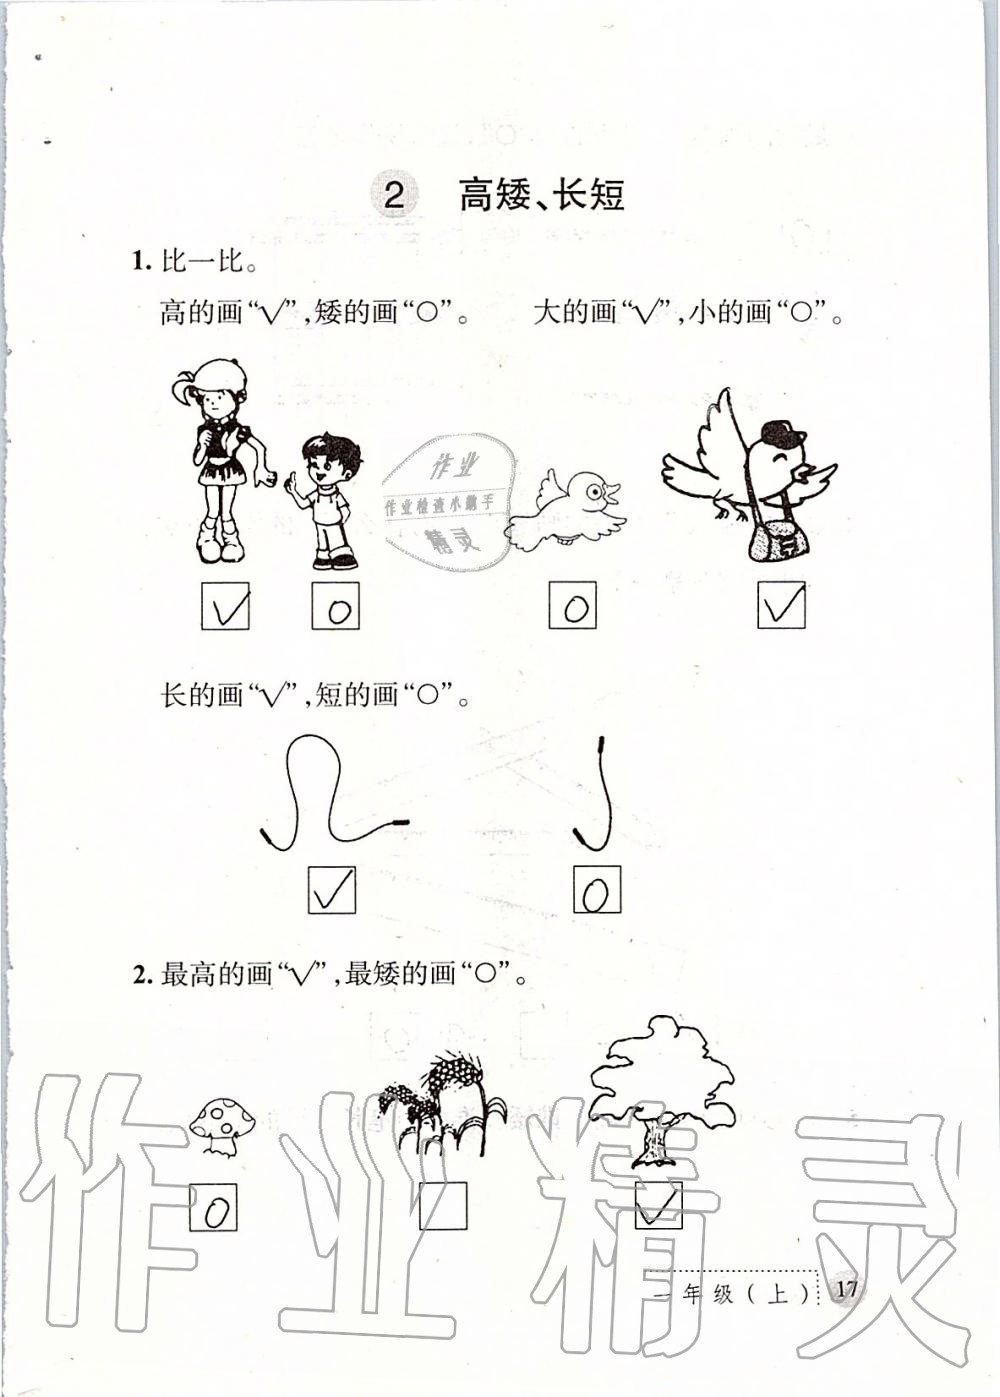 2 高矮、长短
1. 比一比。
高的画“√”,矮的画“○”。 大的画“√”,小的画“○”。
作业
作业检查小助手
精灵
√ ○ ○ √
长的画“√”,短的画“○”。
√ ○
2. 最高的画“√”,最矮的画“○”。
○ √
作业精灵
一年级(上) 17